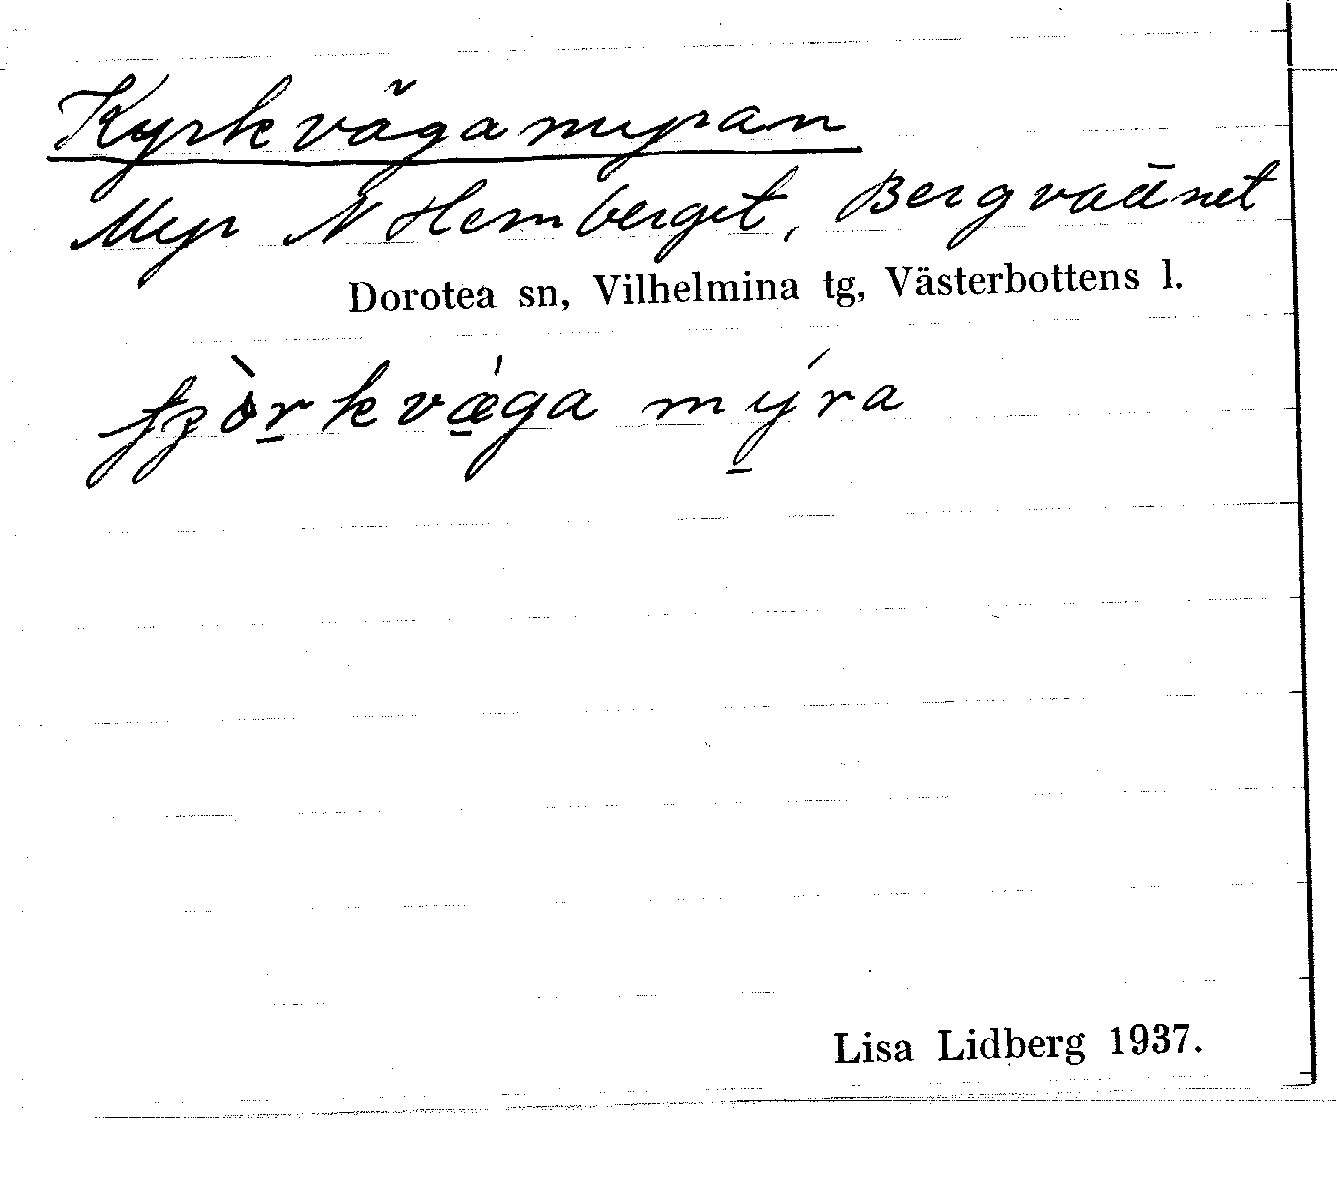 Kyrkvägamyran
Myr N Hemberget, Bergvattnet
Dorotea sn, Vilhelmina tg, Västerbottens l.
fʒòr̲kvǽ̲ga mý̲ra
Lisa Lidberg 1937.